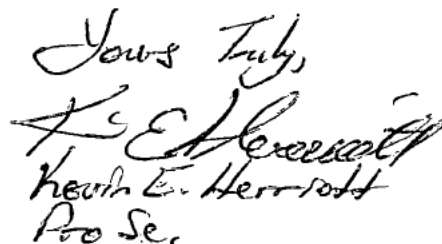 Yours Truly,
K E Herriott
Kevin E. Herriott
Pro Se,